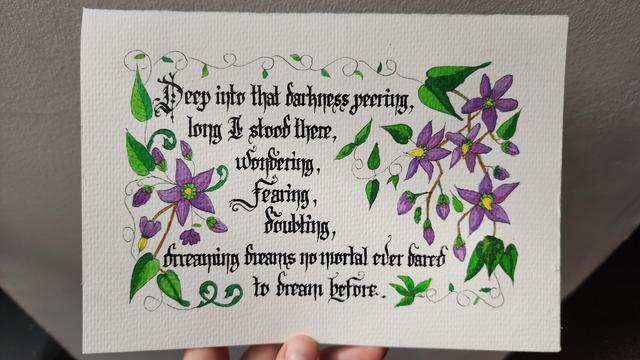 Deep into that darkness peering,
long I stood there,
wondering,
Fearing,
doubting,
dreaming dreams no mortal ever dared
to dream before..